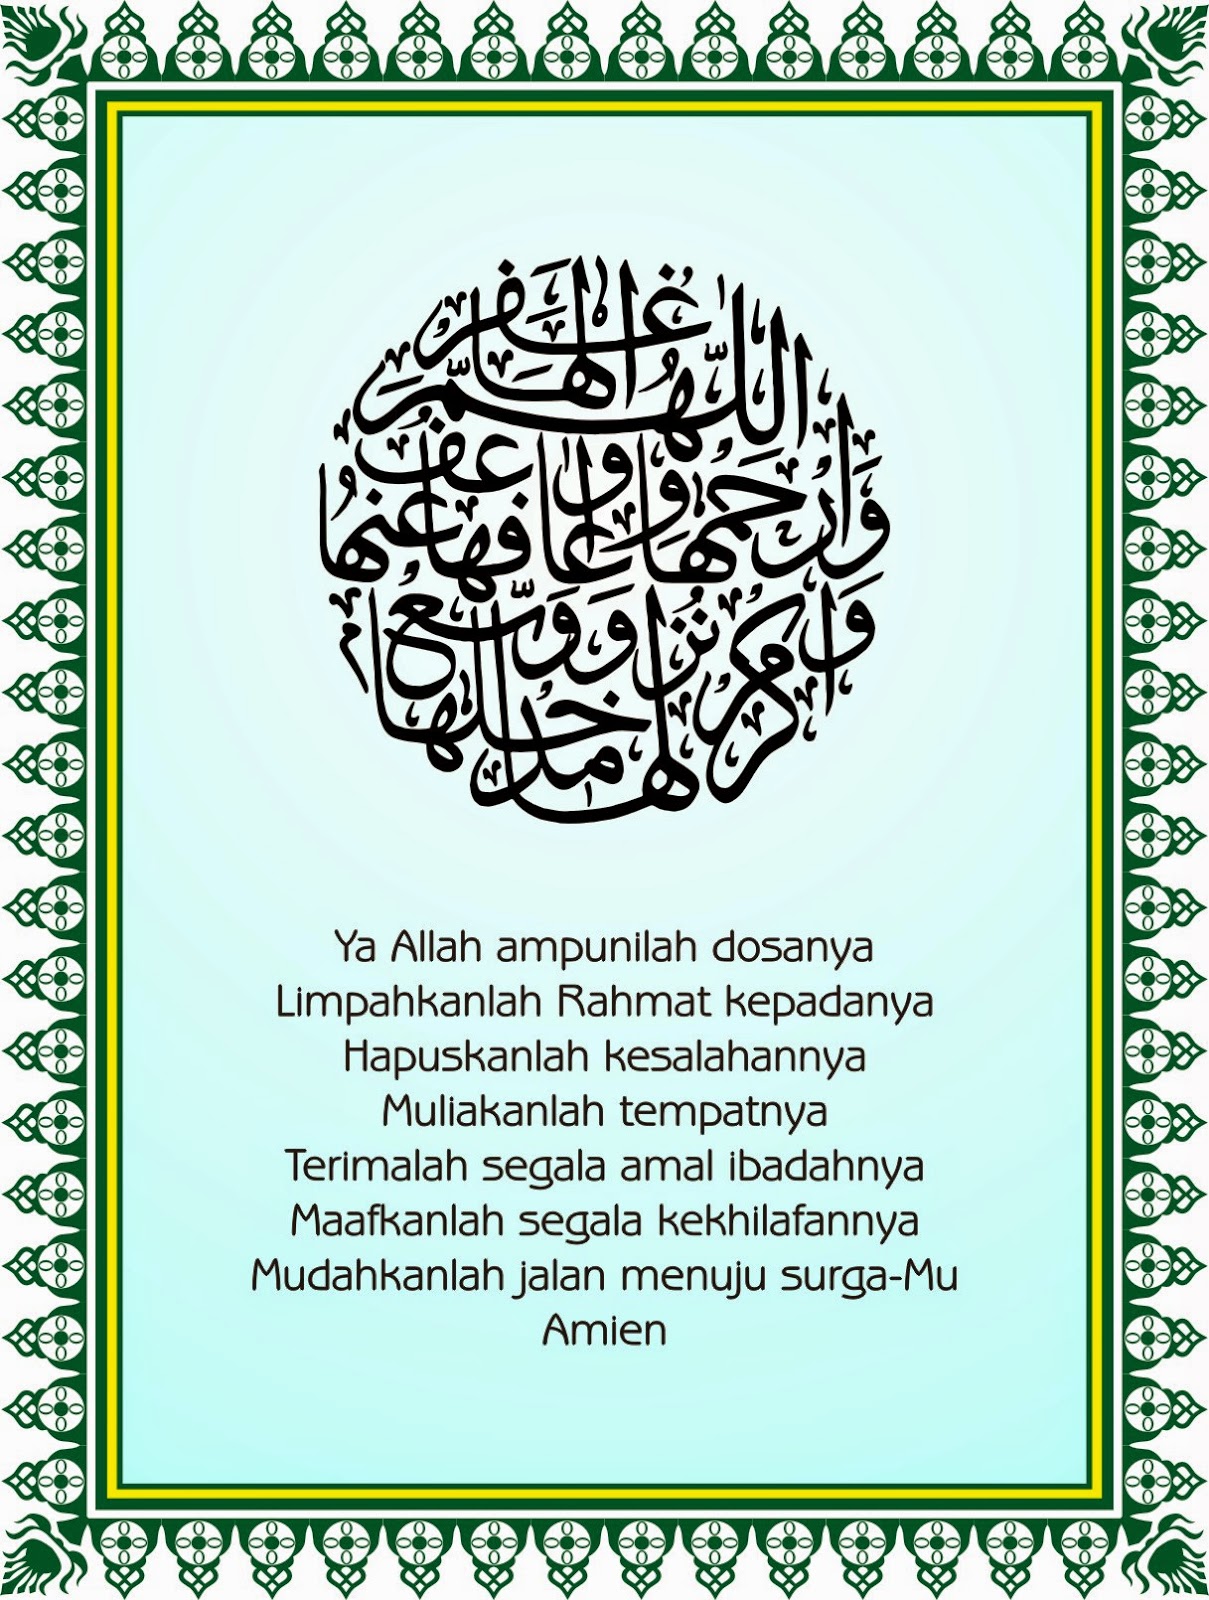 اللّهُمَّ اغْفِرْ لَهَا
وَارْحَمْهَا وَعَافِهَا وَاعْفُ عَنْهَا
وَأَكْرِمْ نُزُلَهَا وَوَسِّعْ مَدْخَلَهَا
Ya Allah ampunilah dosanya
Limpahkanlah Rahmat kepadanya
Hapuskanlah kesalahannya
Muliakanlah tempatnya
Terimalah segala amal ibadahnya
Maafkanlah segala kekhilafannya
Mudahkanlah jalan menuju surga-Mu
Amien